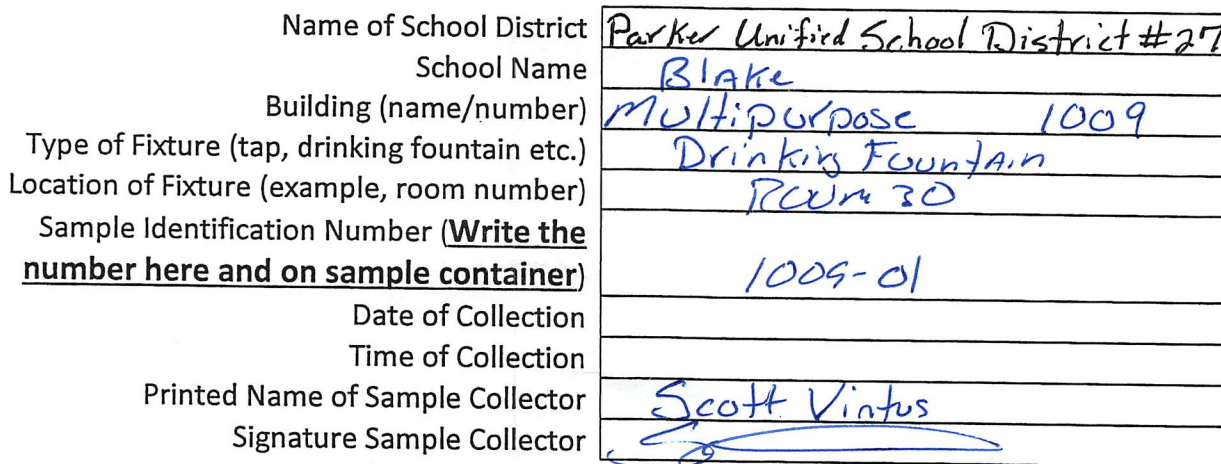 Name of School District Parker Unified School District #27
School Name Blake
Building (name/number) Multipurpose 1009
Type of Fixture (tap, drinking fountain etc.) Drinking Fountain
Location of Fixture (example, room number) Room 30
Sample Identification Number (Write the
number here and on sample container) 1009-01
Date of Collection
Time of Collection
Printed Name of Sample Collector Scott Vintus
Signature Sample Collector